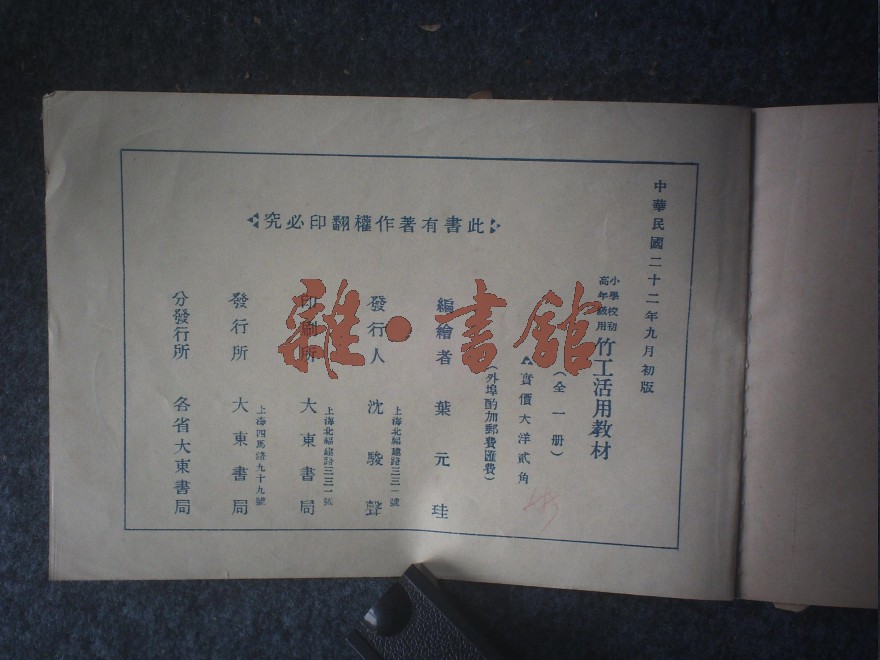 中華民國二十二年九月初版
此書有著作權翻印必究
小學校初
高年級用
竹工活用教材
(全一册)
實價大洋貳角
(外埠酌加郵費匯費)
編繪者 葉元珪
發行人 沈駿聲
上海北福建路三三一號
印刷所 大東書局
上海北福建路三三一號
發行所 大東書局
上海四馬路九十九號
分發行所 各省大東書局
雜·書館